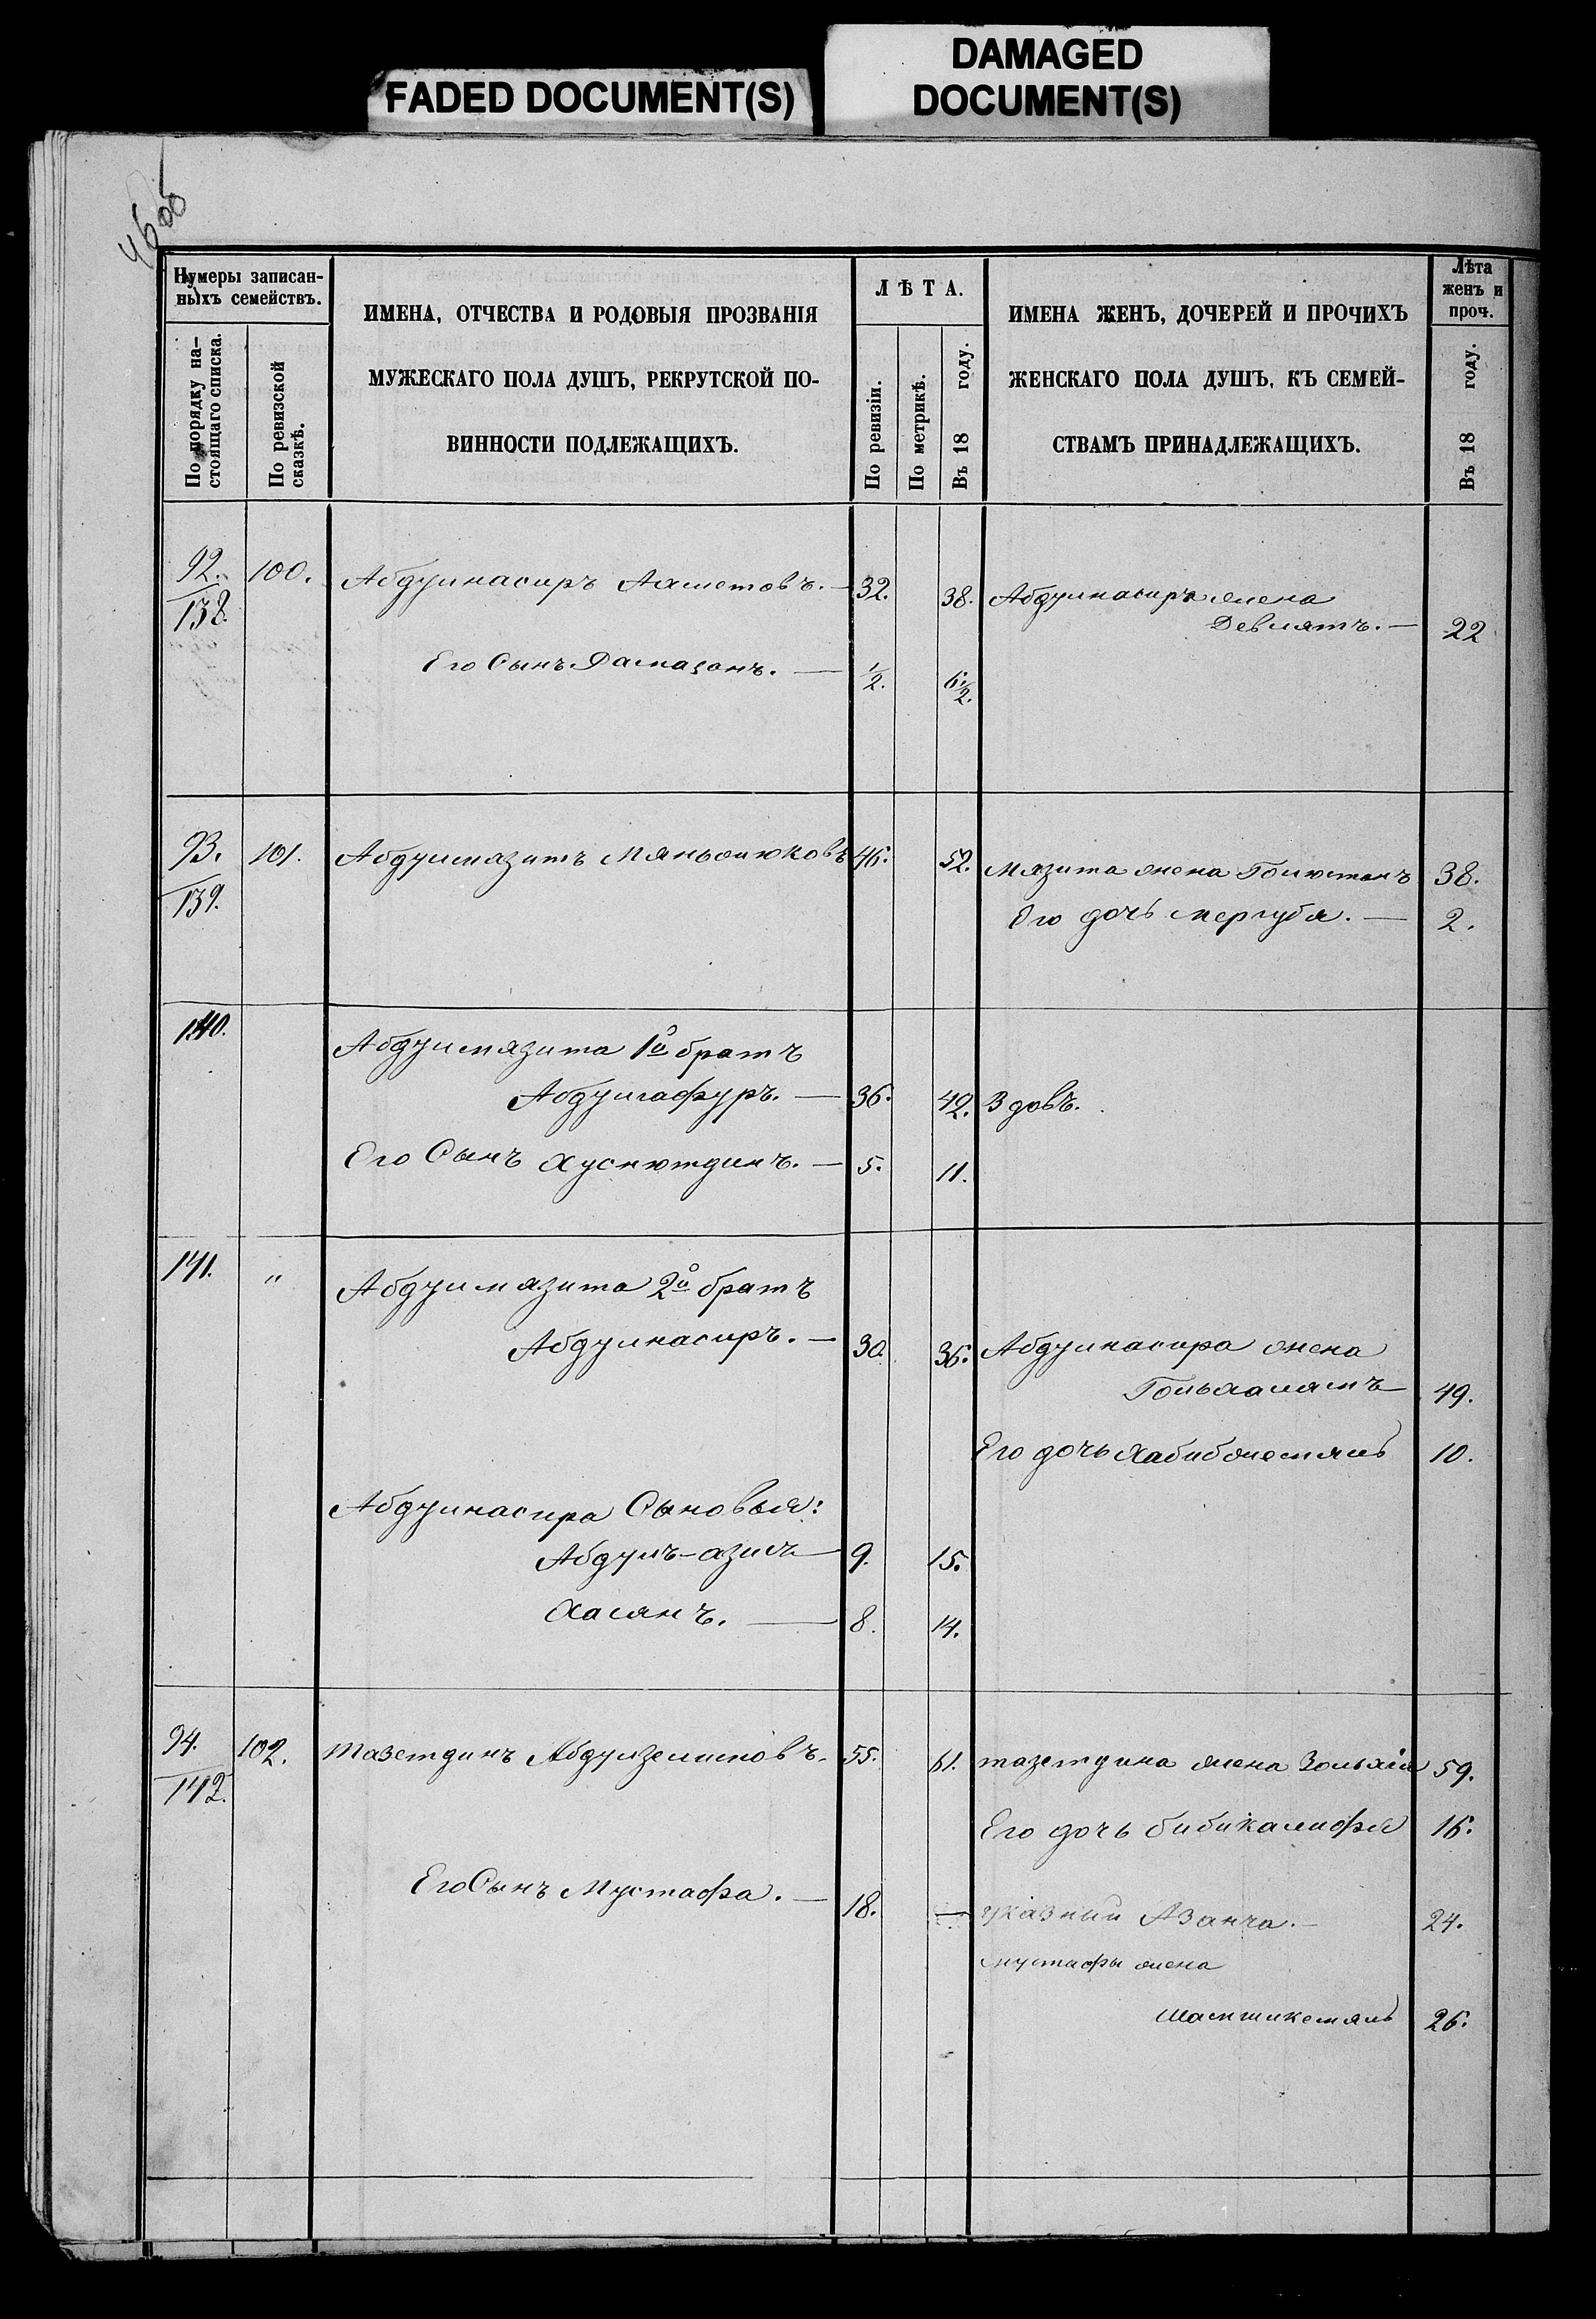 FADED DOCUMENT(S)
DAMAGED
DOCUMENT(S)
Нумеры записан-
ныхъ семействъ.
По порядку на-
стоящаго списка.
По ревизской
сказкѣ.
ИМЕНА, ОТЧЕСТВА И РОДОВЫЯ ПРОЗВАНІЯ
МУЖЕСКАГО ПОЛА ДУШЪ, РЕКРУТСКОЙ ПО-
ВИННОСТИ ПОДЛЕЖАЩИХЪ.
ЛѢТА.
По ревизіи.
По метрикѣ.
Въ 18 году.
ИМЕНА ЖЕНЪ, ДОЧЕРЕЙ И ПРОЧИХЪ
ЖЕНСКАГО ПОЛА ДУШЪ, КЪ СЕМЕЙ-
СТВАМЪ ПРИНАДЛЕЖАЩИХЪ.
Лѣта
женъ и
проч.
Въ 18 году.
92. 100. Абдулнасиръ Ахметовъ. — 32. 38. Абдулнасира жена
138. Девлятъ. — 22
Его Сынъ Рамазанъ. — 1/2. 6 1/2.
93. 101. Абдулмязитъ 46. 52. Мязита жена Гольюстанъ 38.
139. Его дочь Мергубя. — 2.
140. Абдулмязита 1й братъ
Абдулгафуръ. — 36. 42. Вдовъ.
Его Сынъ Хуснютдинъ. — 5. 11.
141. " Абдулмязита 2й братъ
Абдулнасиръ. — 30. 36. Абдулнасира жена
49.
Его дочь Хабибжемялъ 10.
Абдулнасира Сыновья:
Абдулъ-азисъ — 9. 15.
Хасянъ. — 8. 14.
94. 102. Тазетдинъ Абдулзелиловъ. 55. 61. Тазетдина жена 59.
142. Его дочь Бибикамифя 16.
Его Сынъ Мустафа. — 18. — указный Азанча. — 24.
Мустафы жена
Шамшикемялъ 26.